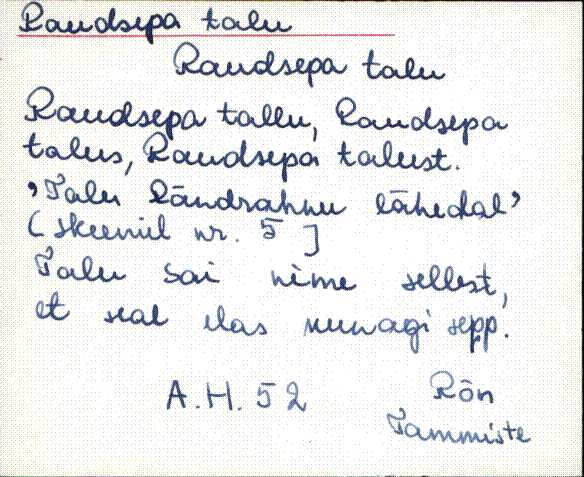 Raudsepa talu
Raudsepa talu
Raudsepa tallu, Raudsepa
talus, Raudsepa talust.
'Talu Ländrahnu lähedal'
(skeemil nr. 5]
Talu sai nime sellest,
et seal elas kunagi sepp.
A.H. 52 Rõn
Tammiste